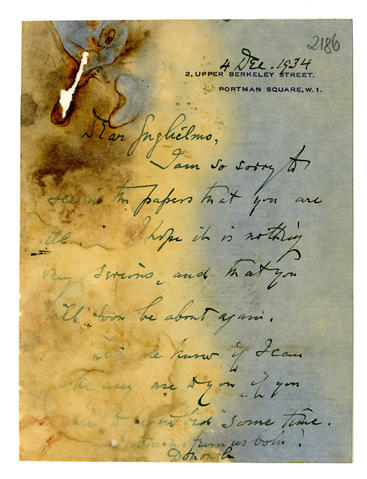 2186
4 Dec. 1934
2, UPPER BERKELEY STREET,
PORTMAN SQUARE, W.1.
Dear Guglielmo,
I am so sorry to
see in the papers that you are
ill. I hope it is nothing
very serious, and that you
will soon be about again.
me know if I can
be any use to you, if you
some time.
from us both.